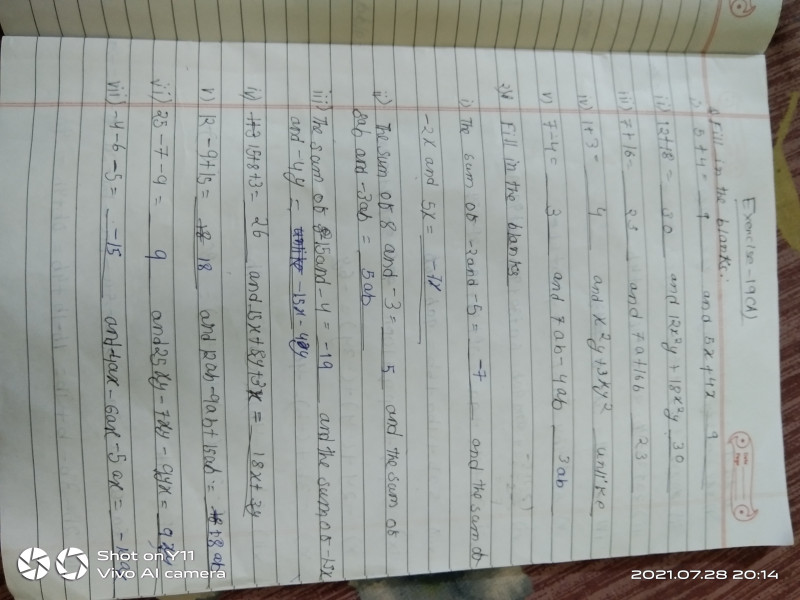 Exercise-19(A)
Q Fill in the blanks:
i) 5+4= 9 and 5x+4x 9
ii) 12+18= 30 and 12x²y + 18x²y 30
iii) 7+16= 23 and 7a+16b 23
iv) 1+3= 4 and x²y+3xy² unlike
v) 7-4= 3 and 7ab-4ab 3ab
Fill in the blanks
i) The sum of -2 and -5 = -7 and the sum of
-2x and 5x= -7x
ii) The sum of 8 and -3 = 5 and the sum of
8ab and -3ab = 5ab
iii) The sum of 15 and -4 = -19 and the sum of -15x
and -4y = -15x-4y
iv) 15+8+3= 26 and 15x+8y+3x = 18x+8y
v) 12-9+15= 18 and 12ab-9ab+15ab= 18ab
vi) 25-7-9= 9 and 25xy-7xy-9yx= 9xy
vii) -4-6-5= -15 and -4ax-6ax-5ax=
Shot on Y11
Vivo AI camera
2021.07.28 20:14